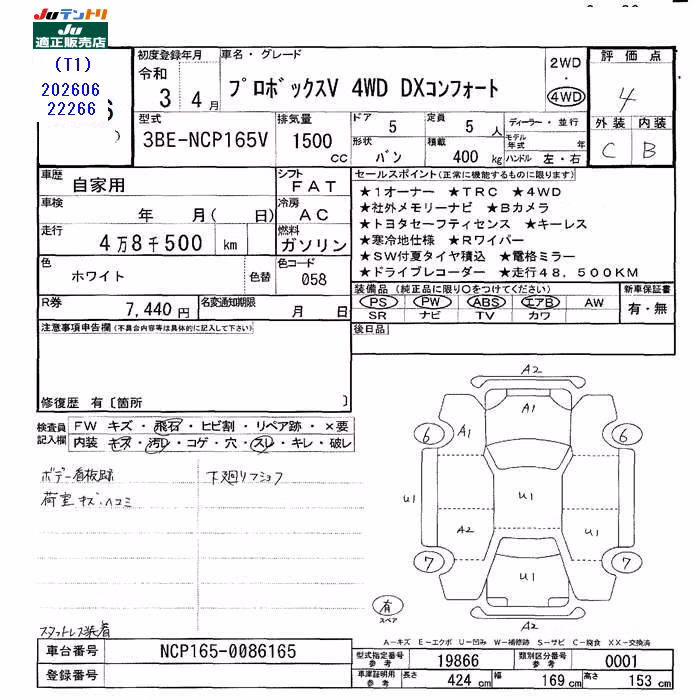 Juテントリ
Ju
適正販売店
(T1)
202606
22266
6
)
初度登録年月
令和
3 4 月
車名・グレード
プロボックスV 4WD DXコンフォート
2WD
・
4WD
評価点
4
外装 内装
C B
型式
3BE-NCP165V
排気量
1500
cc
ドア
5
定員
5 人
形状
バン
積載
400 kg
ディーラー・並行
モデル年式 年
ハンドル 左・右
車歴
自家用
シフト
FAT
車検
年 月( 日)
冷房
AC
走行
4万8千500 km
燃料
ガソリン
色
ホワイト
色替
色コード
058
R券
7,440円
名変通知期限
月 日
セールスポイント(正常に機能するものに限ります)
★1オーナー ★TRC ★4WD
★社外メモリーナビ ★Bカメラ
★トヨタセーフティセンス ★キーレス
★寒冷地仕様 ★Rワイパー
★SW付夏タイヤ積込 ★電格ミラー
★ドライブレコーダー ★走行48,500KM
装備品(純正品に限り○をつけてください)
PS PW ABS エアB AW
SR ナビ TV カワ
新車保証書
有・無
後日品
注意事項申告欄(不具合内容等は具体的に記入して下さい)
修復歴 有〔箇所 〕
検査員記入欄
FW キズ・飛石・ヒビ割・リペア跡・×要
内装 キズ・汚レ・コゲ・穴・スレ・キレ・破レ
ボデー看板跡
荷室キズ・ヘコミ
下廻りフショク
スタットレス装着
A2
A1
6 A1 6
U1 U1 U1
A2
7 7
U1
有
スペア
A2
A-キズ E-エクボ U-凹み W-補修跡 S-サビ C-腐食 XX-交換済
車台番号
NCP165-0086165
登録番号
型式指定番号 参考
19866
類別区分番号 参考
0001
車庫証明用 参考
長さ 424 cm 幅 169 cm 高さ 153 cm